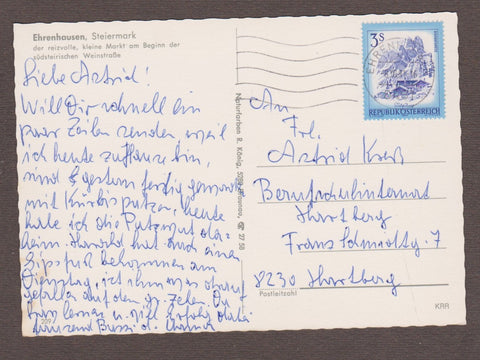 Ehrenhausen, Steiermark
der reizvolle, kleine Markt am Beginn der
südsteirischen Weinstraße
Liebe Astrid!
Will Dir schnell ein
paar Zeilen senden weil
ich heute zuhause bin,
sind gestern fertig geworden
mit Kürbisputzen, heute
habe ich die
daheim. Harald hat einen
Gipsfuß bekommen am
Dienstag, ist ihm etwas
gefallen auf den gr. Zehen. Du
lernen u. viel Erfolg dabei
tausend Bussi d.
Naturfarben R. König,
3S
REPUBLIK ÖSTERREICH
An
Frl.
Astrid
Berufsschulinternat
Hartberg
Franz Schmidtg. 7
8230 Hartberg
Postleitzahl
KRR